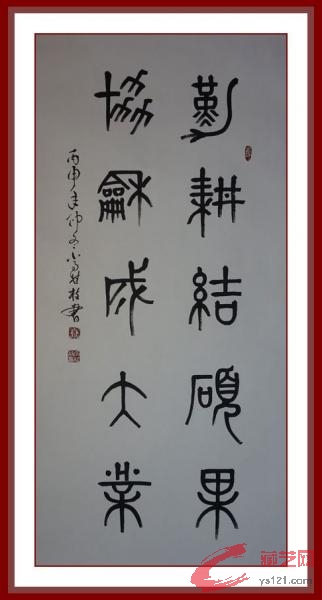 勤耕結碩果
協龢成大業
丙申年仲冬
書
藏艺网
ys121.com